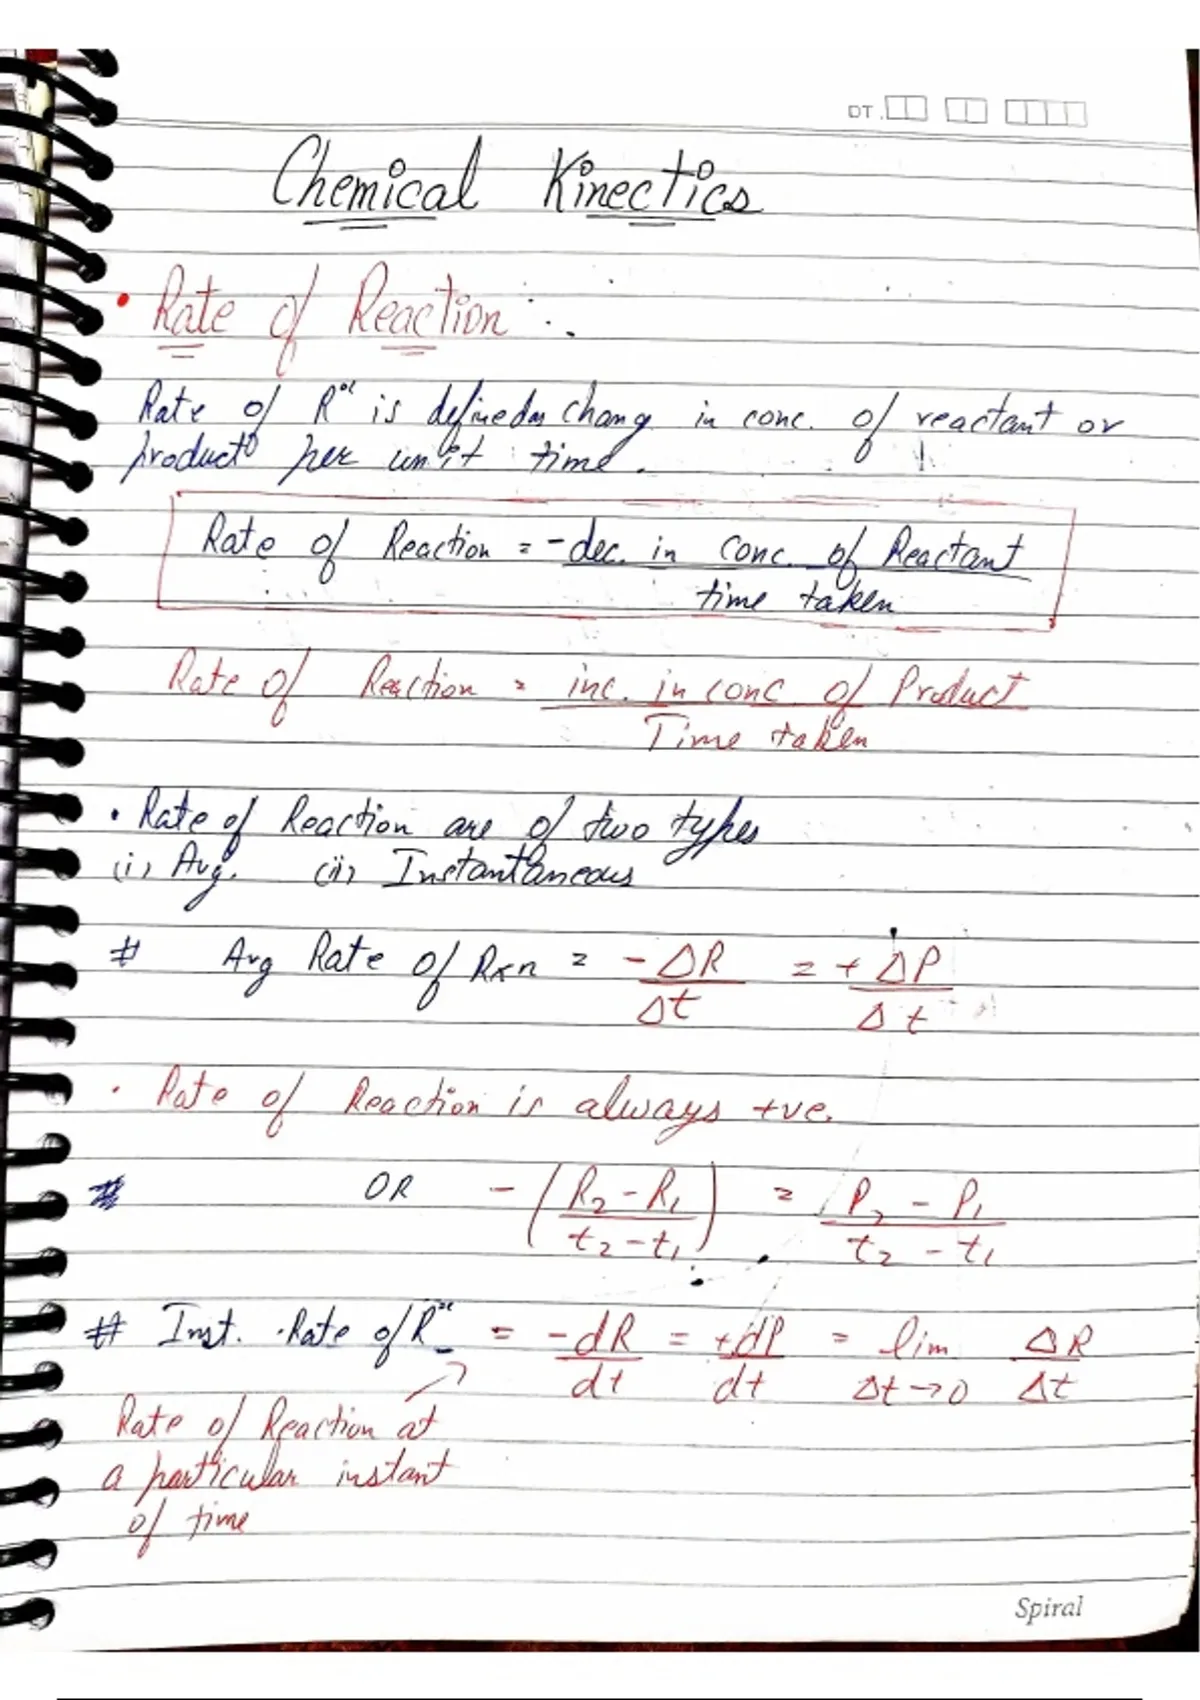 DT.
Chemical Kinectics
• Rate of Reaction :.
Rate of Rxn is defined as chang in conc. of reactant or
product per unit time.
Rate of Reaction = - dec. in conc. of Reactant
time taken
Rate of Reaction = inc. in conc of Product
Time taken
• Rate of Reaction are of two types
(i) Avg. (ii) Instantaneous
# Avg Rate of Rxn = -ΔR = +ΔP
Δt Δt
• Rate of Reaction is always +ve.
OR - (R2 - R1) = P2 - P1
t2 - t1 t2 - t1
# Inst. Rate of Rxn = -dR = +dP = lim ΔR
dt dt Δt→0 Δt
Rate of Reaction at
a particular instant
of time
Spiral